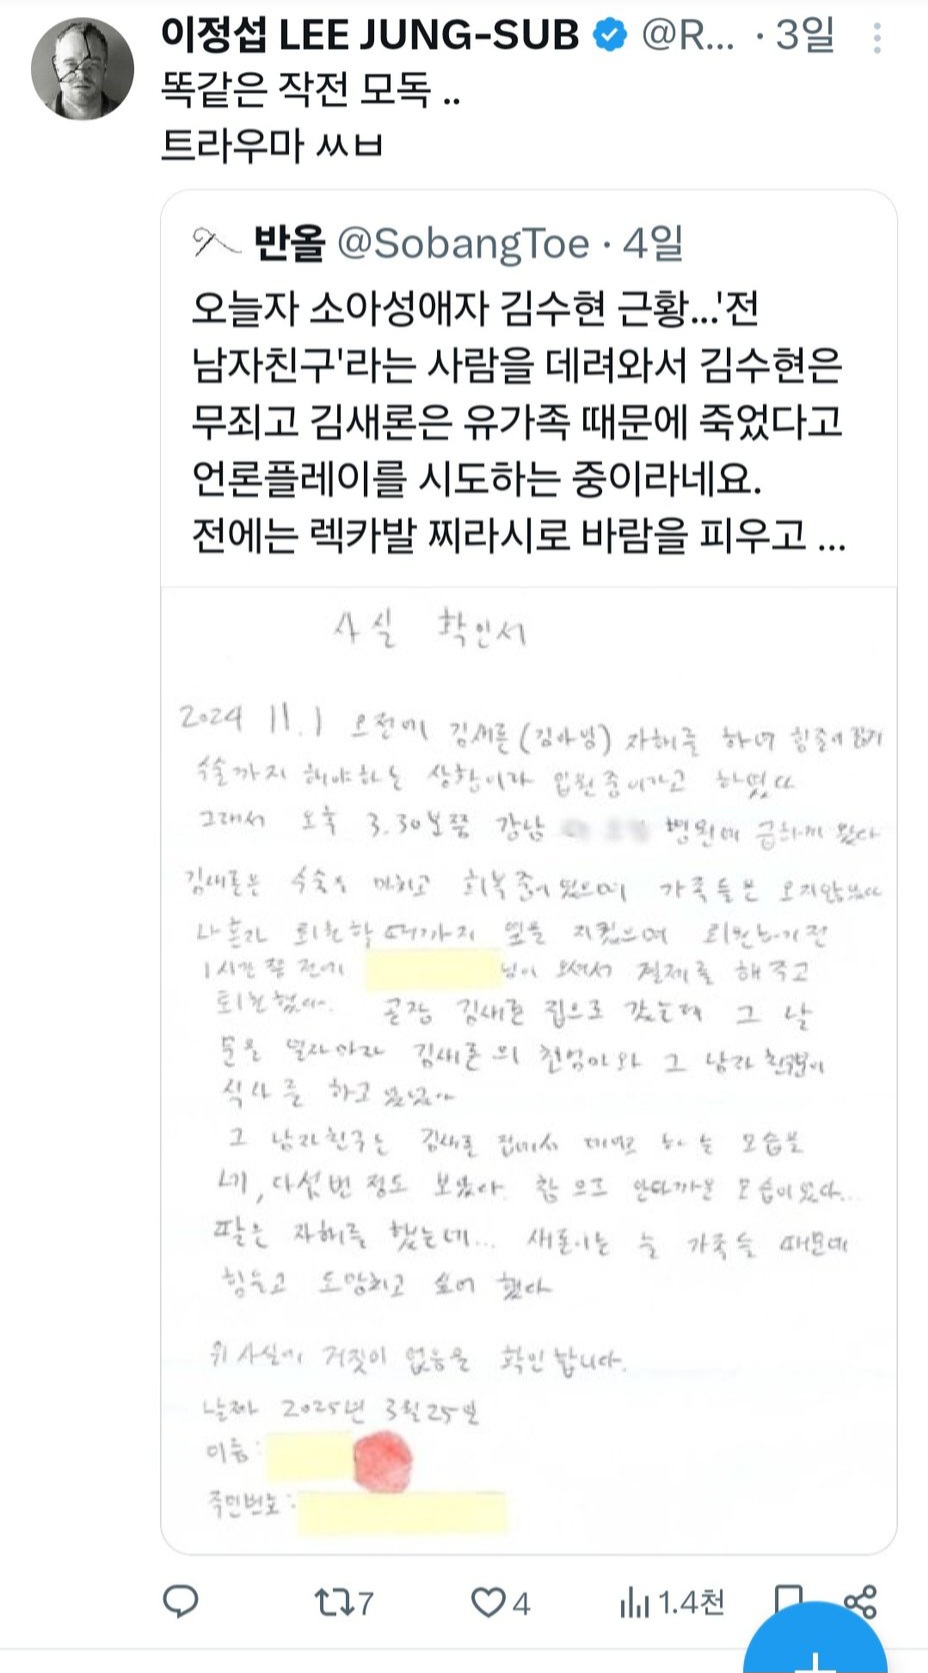 이정섭 LEE JUNG-SUB @R... · 3일
똑같은 작전 모독 ..
트라우마 ㅆㅂ
반올 @SobangToe · 4일
오늘자 소아성애자 김수현 근황...'전
남자친구'라는 사람을 데려와서 김수현은
무죄고 김새론은 유가족 때문에 죽었다고
언론플레이를 시도하는 중이라네요.
전에는 렉카발 찌라시로 바람을 피우고 ...
사실 확인서
2024 11.1 오전에 김새론(김아빙) 자해를 하여 힘줄이
수술까지 해야하는 상황이라 입원중이라고 하였다
그래서 오후 3.30분쯤 강남 병원에 급하게 왔다
김새론은 수술을 마치고 회복중이었으며 가족들은 오지않았다
나혼자 퇴원할때까지 옆을 지켰으며 퇴원하기전
1시간쯤 전에 님이 오셔서 결제를 해주고
퇴원했다. 곧장 김새론 집으로 갔는데 그 날
문을 열자마자 김새론의 친엄마와 그 남자친구분이
식사를 하고 있었다
그 남자친구는 김새론 집에서 하는 모습을
네,다섯번 정도 보았다. 참으로 안타까운 모습이었다...
팔은 자해를 했는데... 새론이는 늘 가족들 때문에
힘들고 도망치고 싶어 했다
위 사실에 거짓이 없음을 확인합니다.
날짜 2025년 3월 25일
이름:
주민번호:
7 4 1.4천